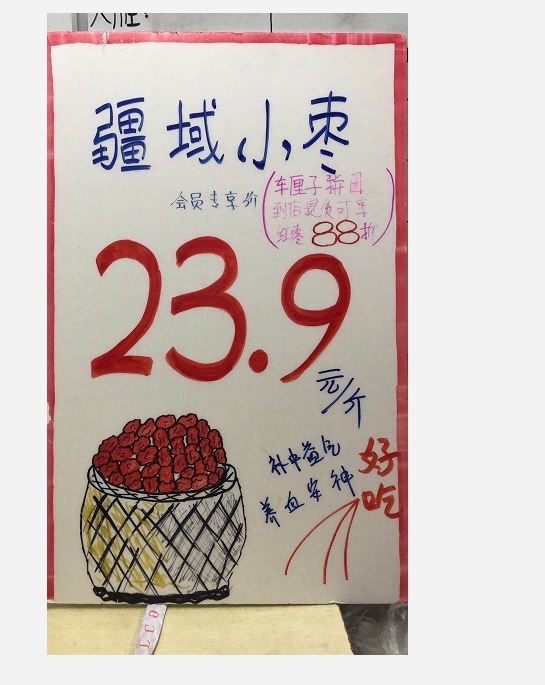 疆域小枣
会员专享价
(车厘子拼团
到店提货可享
红枣 88折)
23.9
元/斤
补中益气
养血安神
好吃